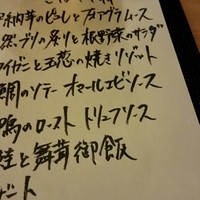 納芋のピューレとフォアグラムース
然ブリの炙りと根野菜のサラダ
ワイガニと玉葱の焼きリゾット
鯛のソテー オマールエビソース
鴨のロースト トリュフソース
鮭と舞茸御飯
ザート